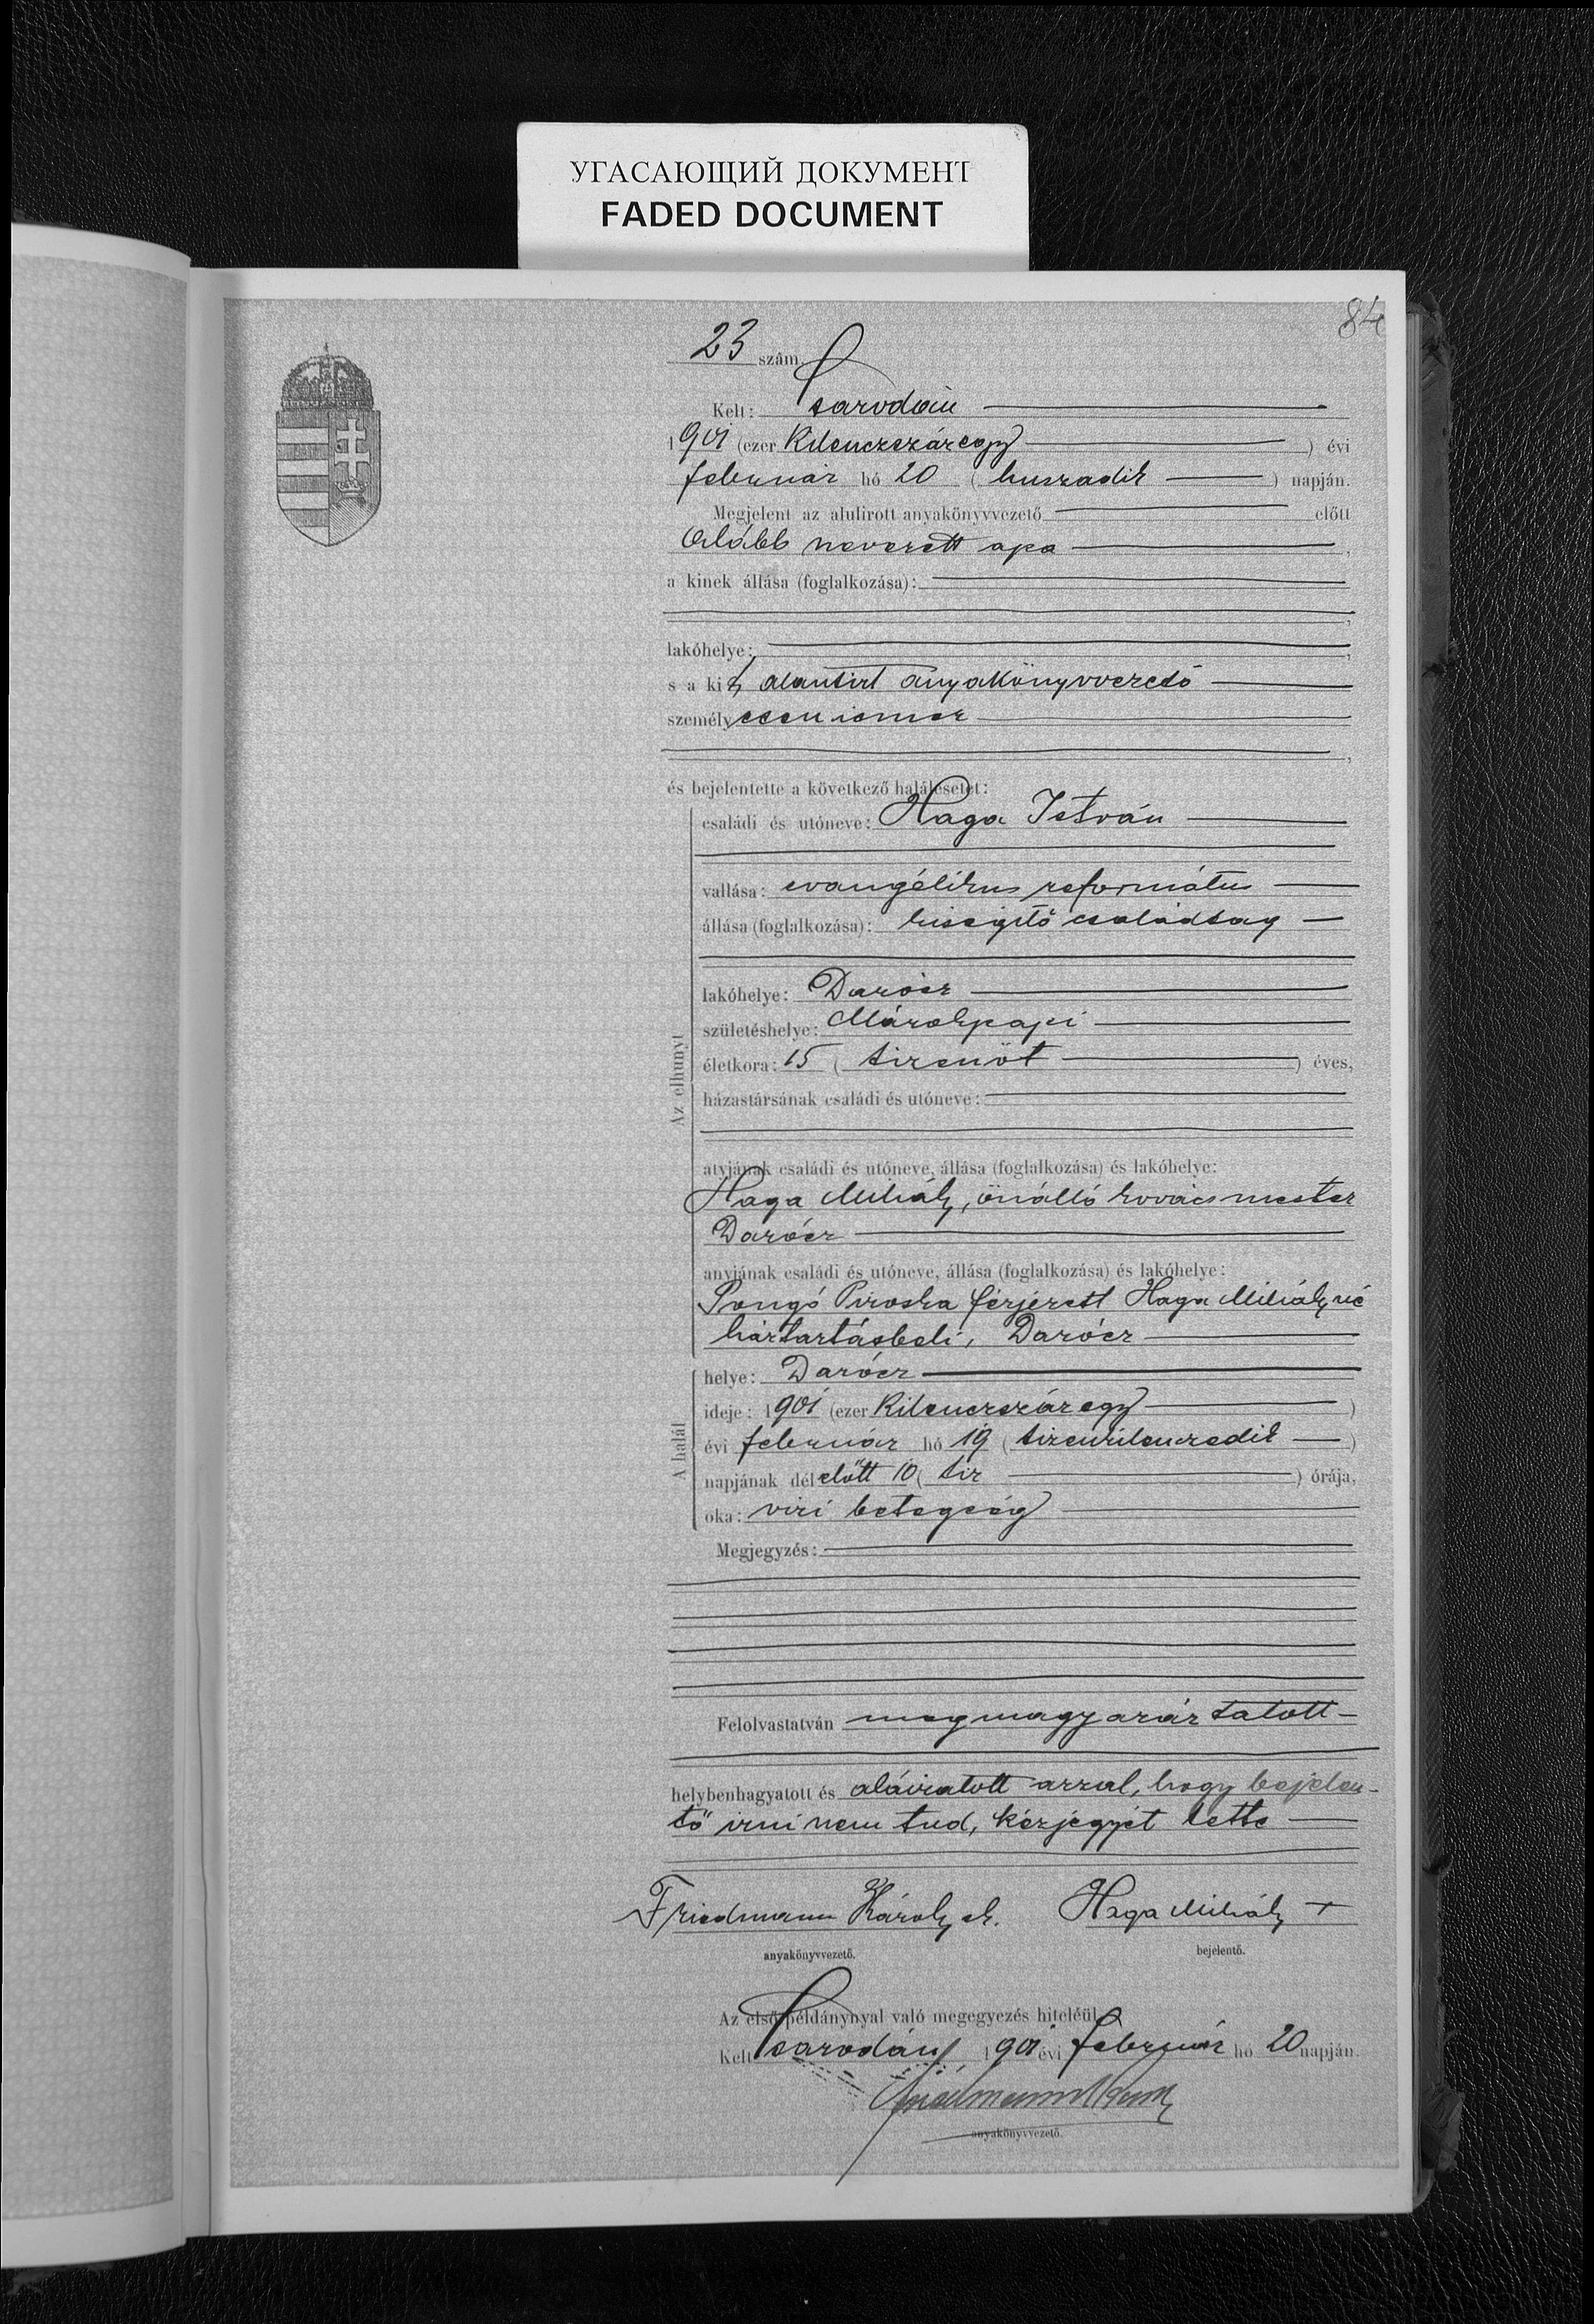 УГАСАЮЩИЙ ДОКУМЕНТ
FADED DOCUMENT
84
23 szám.
Kelt: Csarodán
1901 (ezer kilenczszáregy) évi
február hó 20 (huszadik) napján.
Megjelent az alulirott anyakönyvvezető előtt
alább nevezett apa,
a kinek állása (foglalkozása):
lakóhelye:
s a kit alantirt anyakönyvvezető
személyesen ismer
és bejelentette a következő halálesetet:
Az elhunyt
családi és utóneve: Haga István
vallása: evangélikus református
állása (foglalkozása): kisegitő családtag
lakóhelye: Darócz
születéshelye: Márokpapi
életkora: 15 (tizenöt) éves,
házastársának családi és utóneve:
atyjának családi és utóneve, állása (foglalkozása) és lakóhelye:
Haga Mihály, önálló kovácsmester
Darócz
anyjának családi és utóneve, állása (foglalkozása) és lakóhelye:
Pongó Piroska férjezett Haga Mihályné
háztartásbeli, Darócz
A halál
helye: Darócz
ideje: 1901 (ezer kilenczszáregy)
évi február hó 19 (tizenkilenczedik)
napjának délelőtt 10 (tiz) órája,
oka: vizi betegség
Megjegyzés:
Felolvastatván megmagyaráztatott
helybenhagyatott és aláiratott azzal, hogy bejelen-
tő irni nem tud, kézjegyét tette
Friedmann Károly sk. Haga Mihály +
anyakönyvvezető. bejelentő.
Az első példánynyal való megegyezés hiteléül
Kelt Csarodán, 1901 évi február hó 20 napján.
Friedmann Károly
anyakönyvvezető.